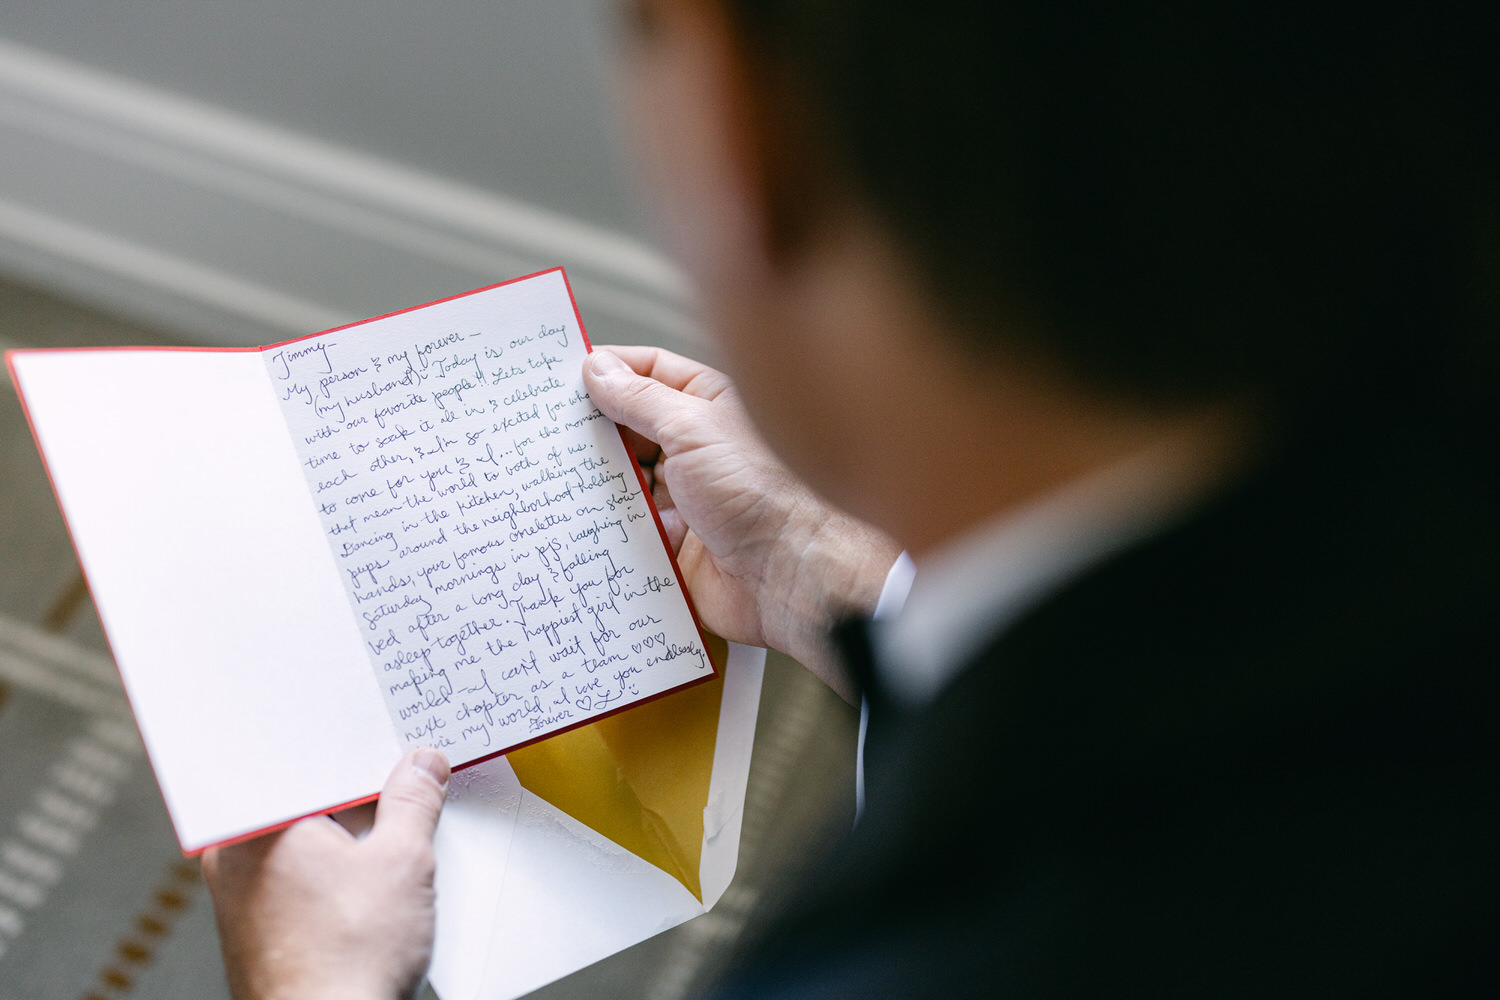 Jimmy-
My person & my forever-
(my husband)! Today is our day
with our favorite people!! Lets take
time to soak it all in & celebrate
each other, & I'm so excited for what
to come for you & I...for the moments
that mean the world to both of us.
Dancing in the kitchen, walking the
pups around the neighborhood holding
hands, your famous omelettes on slow
Saturday mornings in pjs, laughing in
bed after a long day & falling
asleep together. Thank you for
making me the happiest girl in the
world - I can't wait for our
next chapter as a team ♡♡♡
my world, I love you endlessly.
Forever ♡ L :)